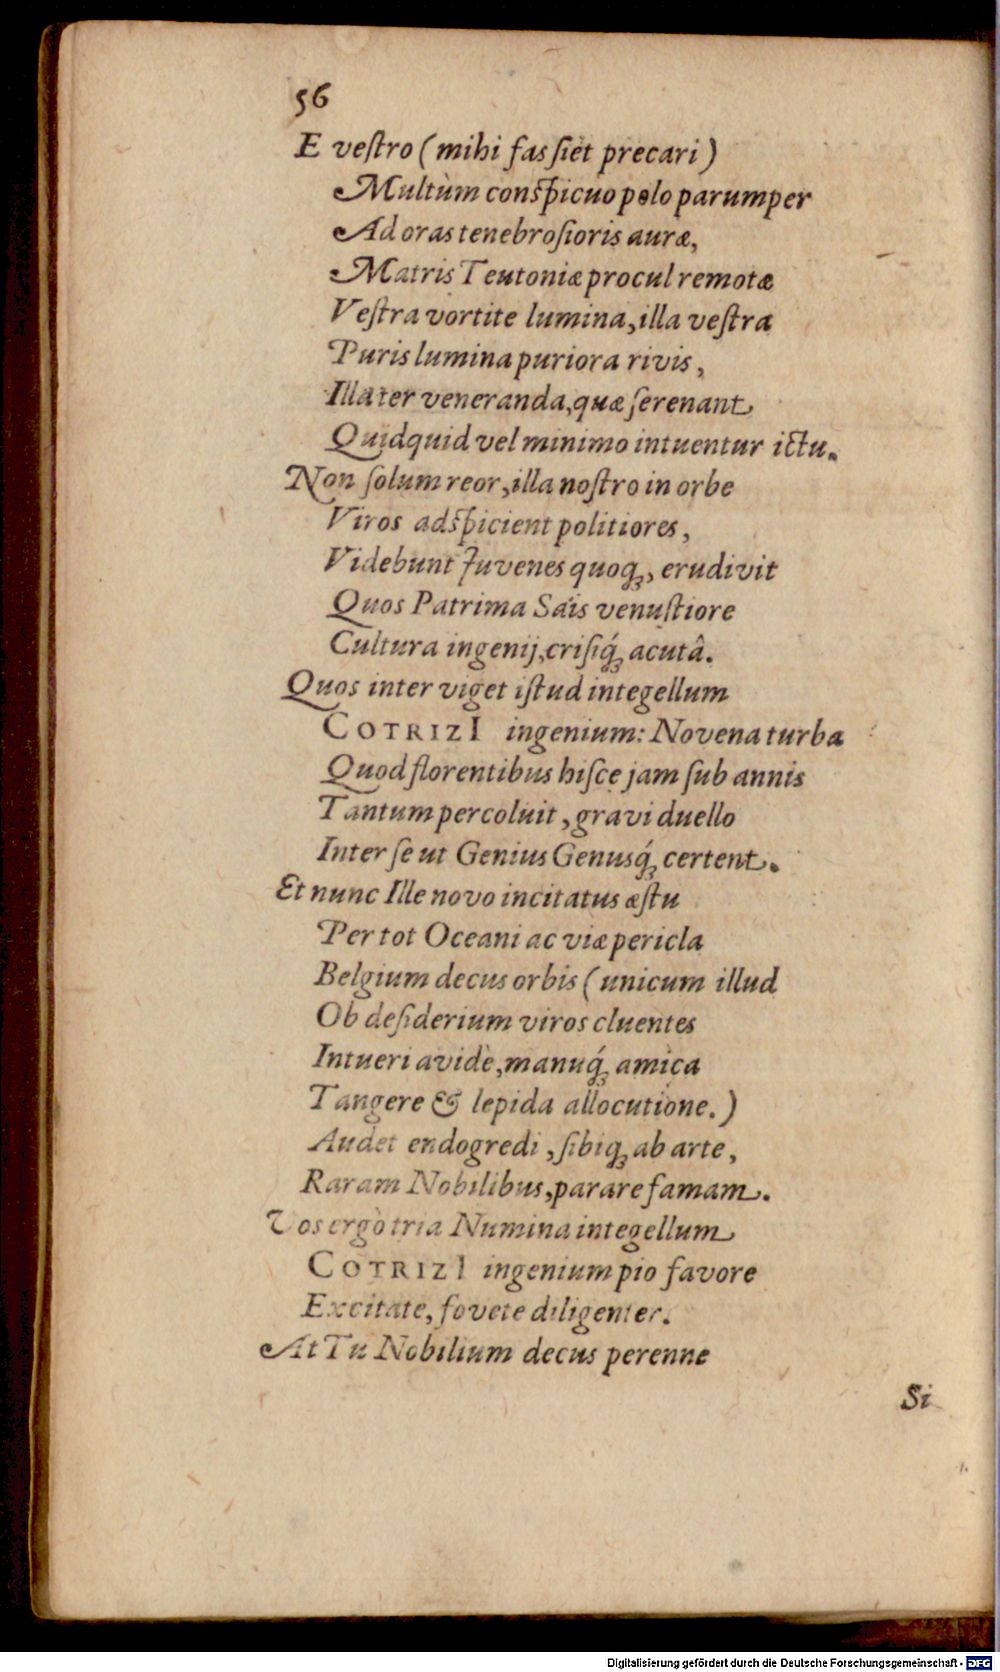 56
E veſtro ( mihi fas ſiet precari )
Multùm conſpicuo polo parumper
Ad oras tenebroſioris auræ,
Matris Teutoniæ procul remotæ
Veſtra vortite lumina, illa veſtra
Puris lumina puriora rivis,
Illa ter veneranda, quæ ſerenant
Quidquid vel minimo intuentur ictu.
Non ſolum reor, illa noſtro in orbe
Viros adſpicient politiores,
Videbunt Juvenes quoq;, erudivit
Quos Patrima Saïs venuſtiore
Cultura ingenij, criſiq́; acutâ.
Quos inter viget iſtud integellum
COTRIZI ingenium: Novena turba
Quod florentibus hiſce jam ſub annis
Tantum percoluit, gravi duello
Inter ſe ut Genius Genusq́; certent.
Et nunc Ille novo incitatus æſtu
Per tot Oceani ac viæ pericla
Belgium decus orbis ( unicum illud
Ob deſiderium viros cluentes
Intueri avidè, manuq́; amica
Tangere & lepida allocutione. )
Audet endogredi, ſibiq; ab arte,
Raram Nobilibus, parare famam.
Vos ergò tria Numina integellum
COTRIZI ingenium pio favore
Excitate, fovete diligenter.
At Tu Nobilium decus perenne
Si
Digitalisierung gefördert durch die Deutsche Forschungsgemeinschaft - DFG